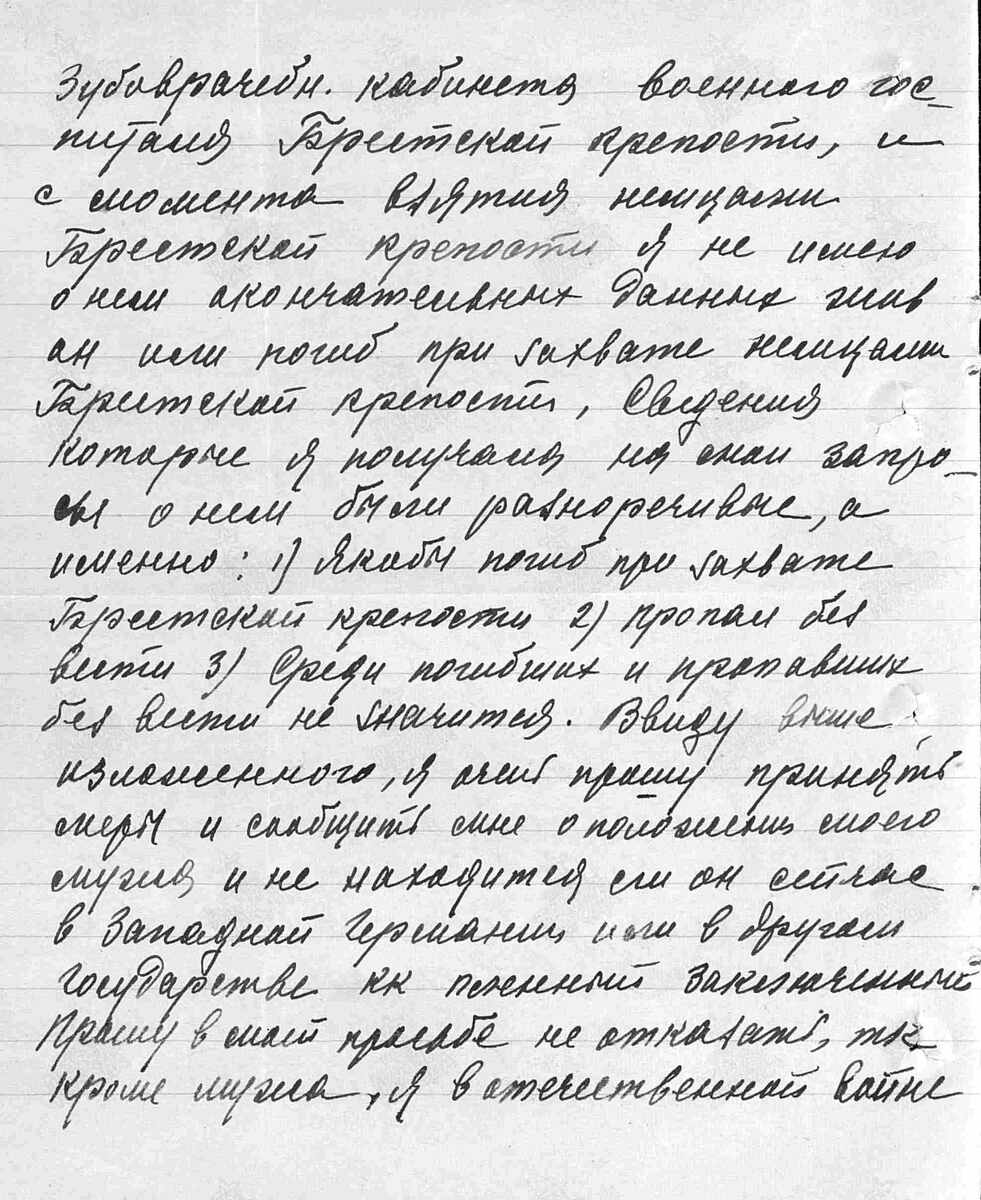 Зубоврачебн. кабинета военного гос-
питаля Брестской крепости, и
с момента взятия немцами
Брестской крепости я не имею
о нем окончательных данных жив
он или погиб при захвате немцами
Брестской крепости, Сведения
которые я получала на свои запро-
сы о нем были разноречивые, а
именно: 1) Якобы погиб при захвате
Брестской крепости 2) пропал без
вести 3) Среди погибших и пропавших
без вести не значится. Ввиду выше
изложенного, я очень прошу принять
меры и сообщить мне о положении моего
мужа и не находится ли он сейчас
в Западной Германии или в другом
государстве как пленный заключенный
Прошу в моей просьбе не отказать, т.к.
кроме мужа, я в отечественной войне